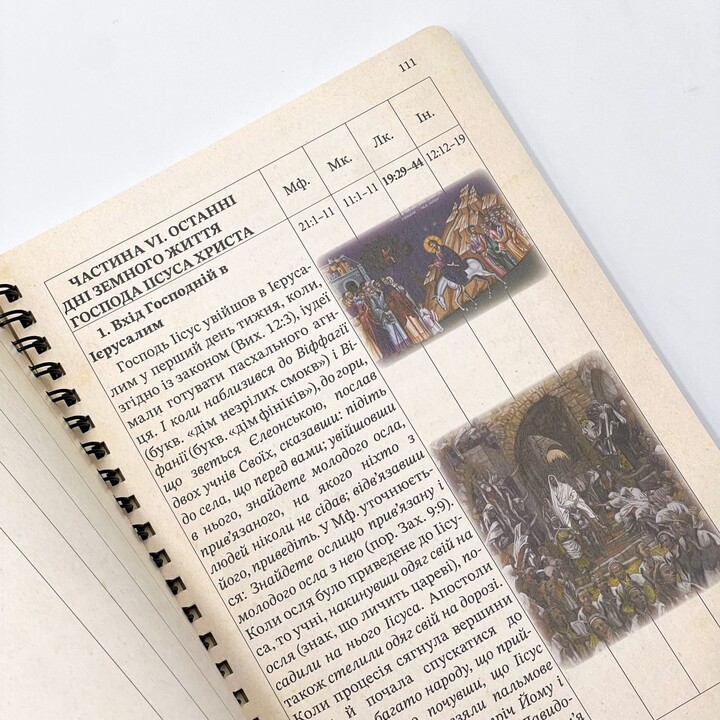 111
Мф.
Мк.
Лк.
Ін.
ЧАСТИНА VI. ОСТАННІ
ДНІ ЗЕМНОГО ЖИТТЯ
ГОСПОДА ІІСУСА ХРИСТА
21:1–11
11:1–11
19:29–44
12:12–19
1. Вхід Господній в
Ієрусалим
Господь Іісус увійшов в Ієруса-
лим у перший день тижня, коли,
згідно із законом (Вих. 12:3), іудеї
мали готувати пасхального агн-
ця. І коли наблизився до Віффагії
(букв. «дім незрілих смокв») і Ві-
фанії (букв. «дім фініків»), до гори,
що зветься Єлеонською, послав
двох учнів Своїх, сказавши: підіть
до села, що перед вами; увійшовши
в нього, знайдете молодого осла,
прив'язаного, на якого ніхто з
людей ніколи не сідав; відв'язавши
його, приведіть. У Мф. уточнюєть-
ся: Знайдете ослицю прив'язану і
молодого осла з нею (пор. Зах. 9:9)
Коли осля було приведене до Іісу-
са, то учні, накинувши одяг свій на
осля (знак, що личить цареві), по-
садили на нього Іісуса. Апостоли
також стелили одяг свій на дорозі.
Коли процесія сягнула вершини
й почала спускатися до
багато народу, що прий-
почувши, що Іісус
взяли пальмове
Йому і